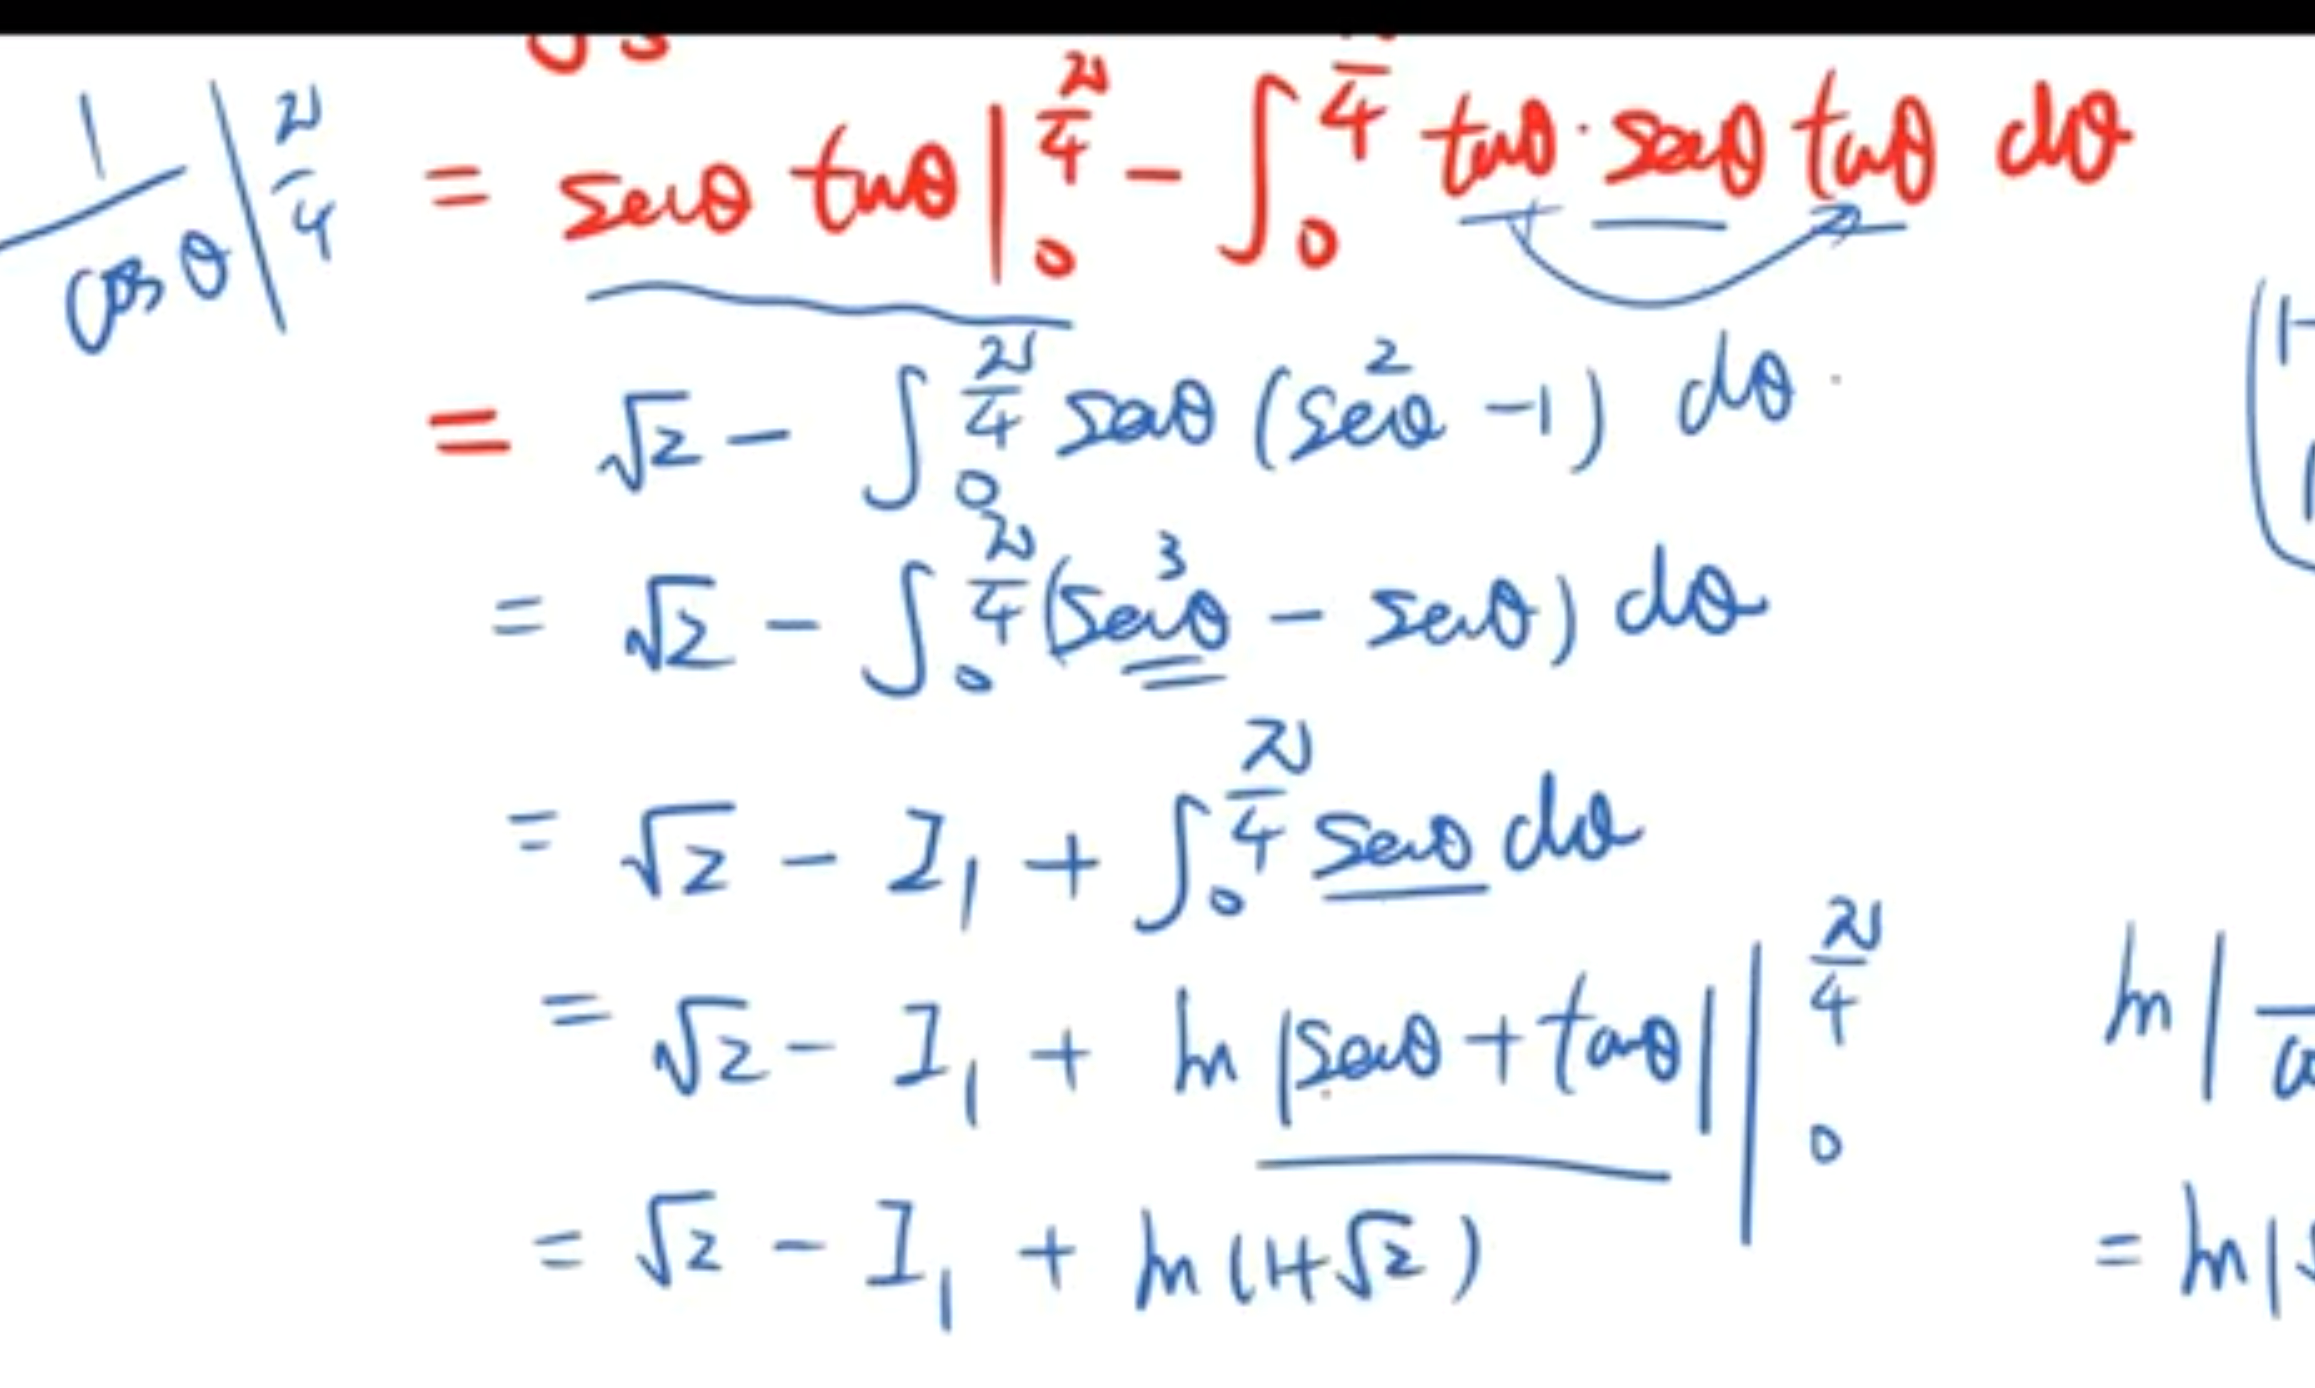 1/cosθ |^{π/4}
= secθ tanθ |_0^{π/4} - ∫_0^{π/4} tanθ · secθ tanθ dθ
= √2 - ∫_0^{π/4} secθ (sec²θ - 1) dθ
= √2 - ∫_0^{π/4} (sec³θ - secθ) dθ
= √2 - I₁ + ∫_0^{π/4} secθ dθ
= √2 - I₁ + ln |secθ + tanθ| |_0^{π/4}
= √2 - I₁ + ln (1+√2)
ln |
= ln |